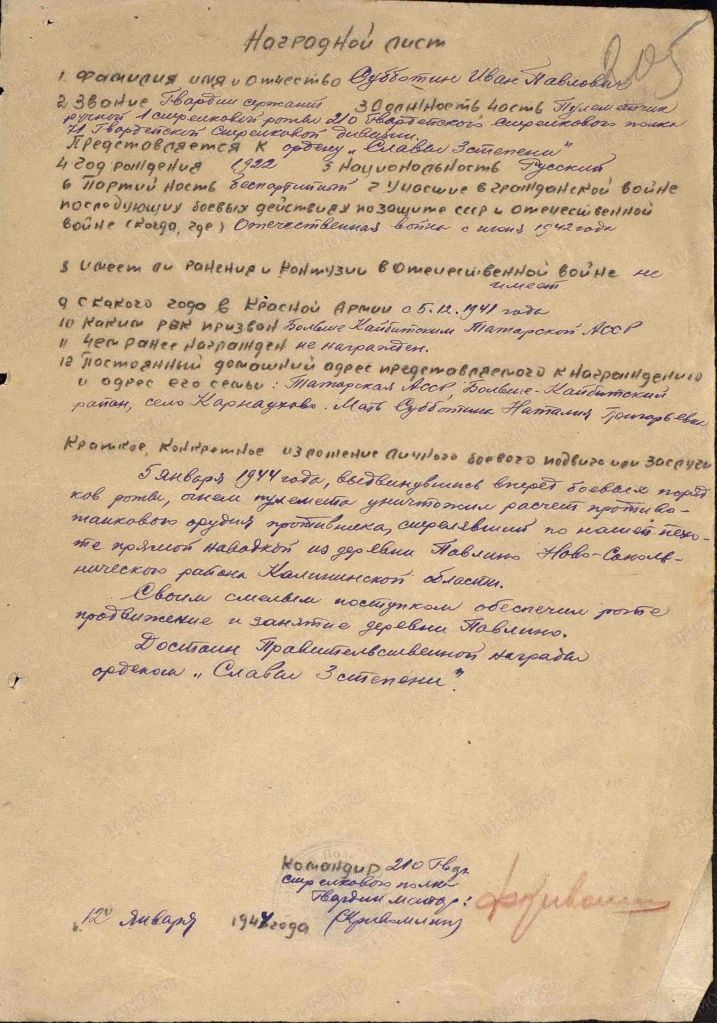 205
Наградной лист
1 Фамилия имя и отчество Субботин Иван Павлович
2 Звание Гвардии сержант 3 Должность часть Пулеметчик
ручной 1 стрелковой роты 210 Гвардейского стрелкового полка
71 Гвардейской Стрелковой дивизии.
Представляется к ордену „Славы 3 степени"
4 Год рождения 1922 5 Национальность Русский
6 Партийность беспартийный 7 Участие в гражданской войне
последующих боевых действиях по защите СССР и отечественной
войне (когда, где) Отечественная война с июня 1942 года
8 Имеет ли ранения и контузии в Отечественной войне не
имеет
9 С какого года в Красной Армии с 5.12.1941 года
10 Каким РВК призван Больше Кайбитским Татарской АССР
11 Чем ранее награжден не награжден.
12 Постоянный домашний адрес представляемого к награждению
и адрес его семьи: Татарская АССР, Больше-Кайбитский
район, село Карнаухово. Мать Субботина Наталия Григорьевна
Краткое, конкретное изложение личного боевого подвига или заслуги
5 января 1944 года, выдвинувшись вперед боевых поряд
ков роты, огнем пулемета уничтожил расчет противо-
танкового орудия противника, стрелявший по нашей пехо-
те прямой наводкой из деревни Павлино Ново-Соколь-
нического района Калининской области.
Своим смелым поступком обеспечил роте
продвижение и занятие деревни Павлино.
Достоин Правительственной награды
орденом „Славы 3 степени".
Командир 210 Гвдр.
стрелкового полка
Гвардии майор:
12 Января 1944 года